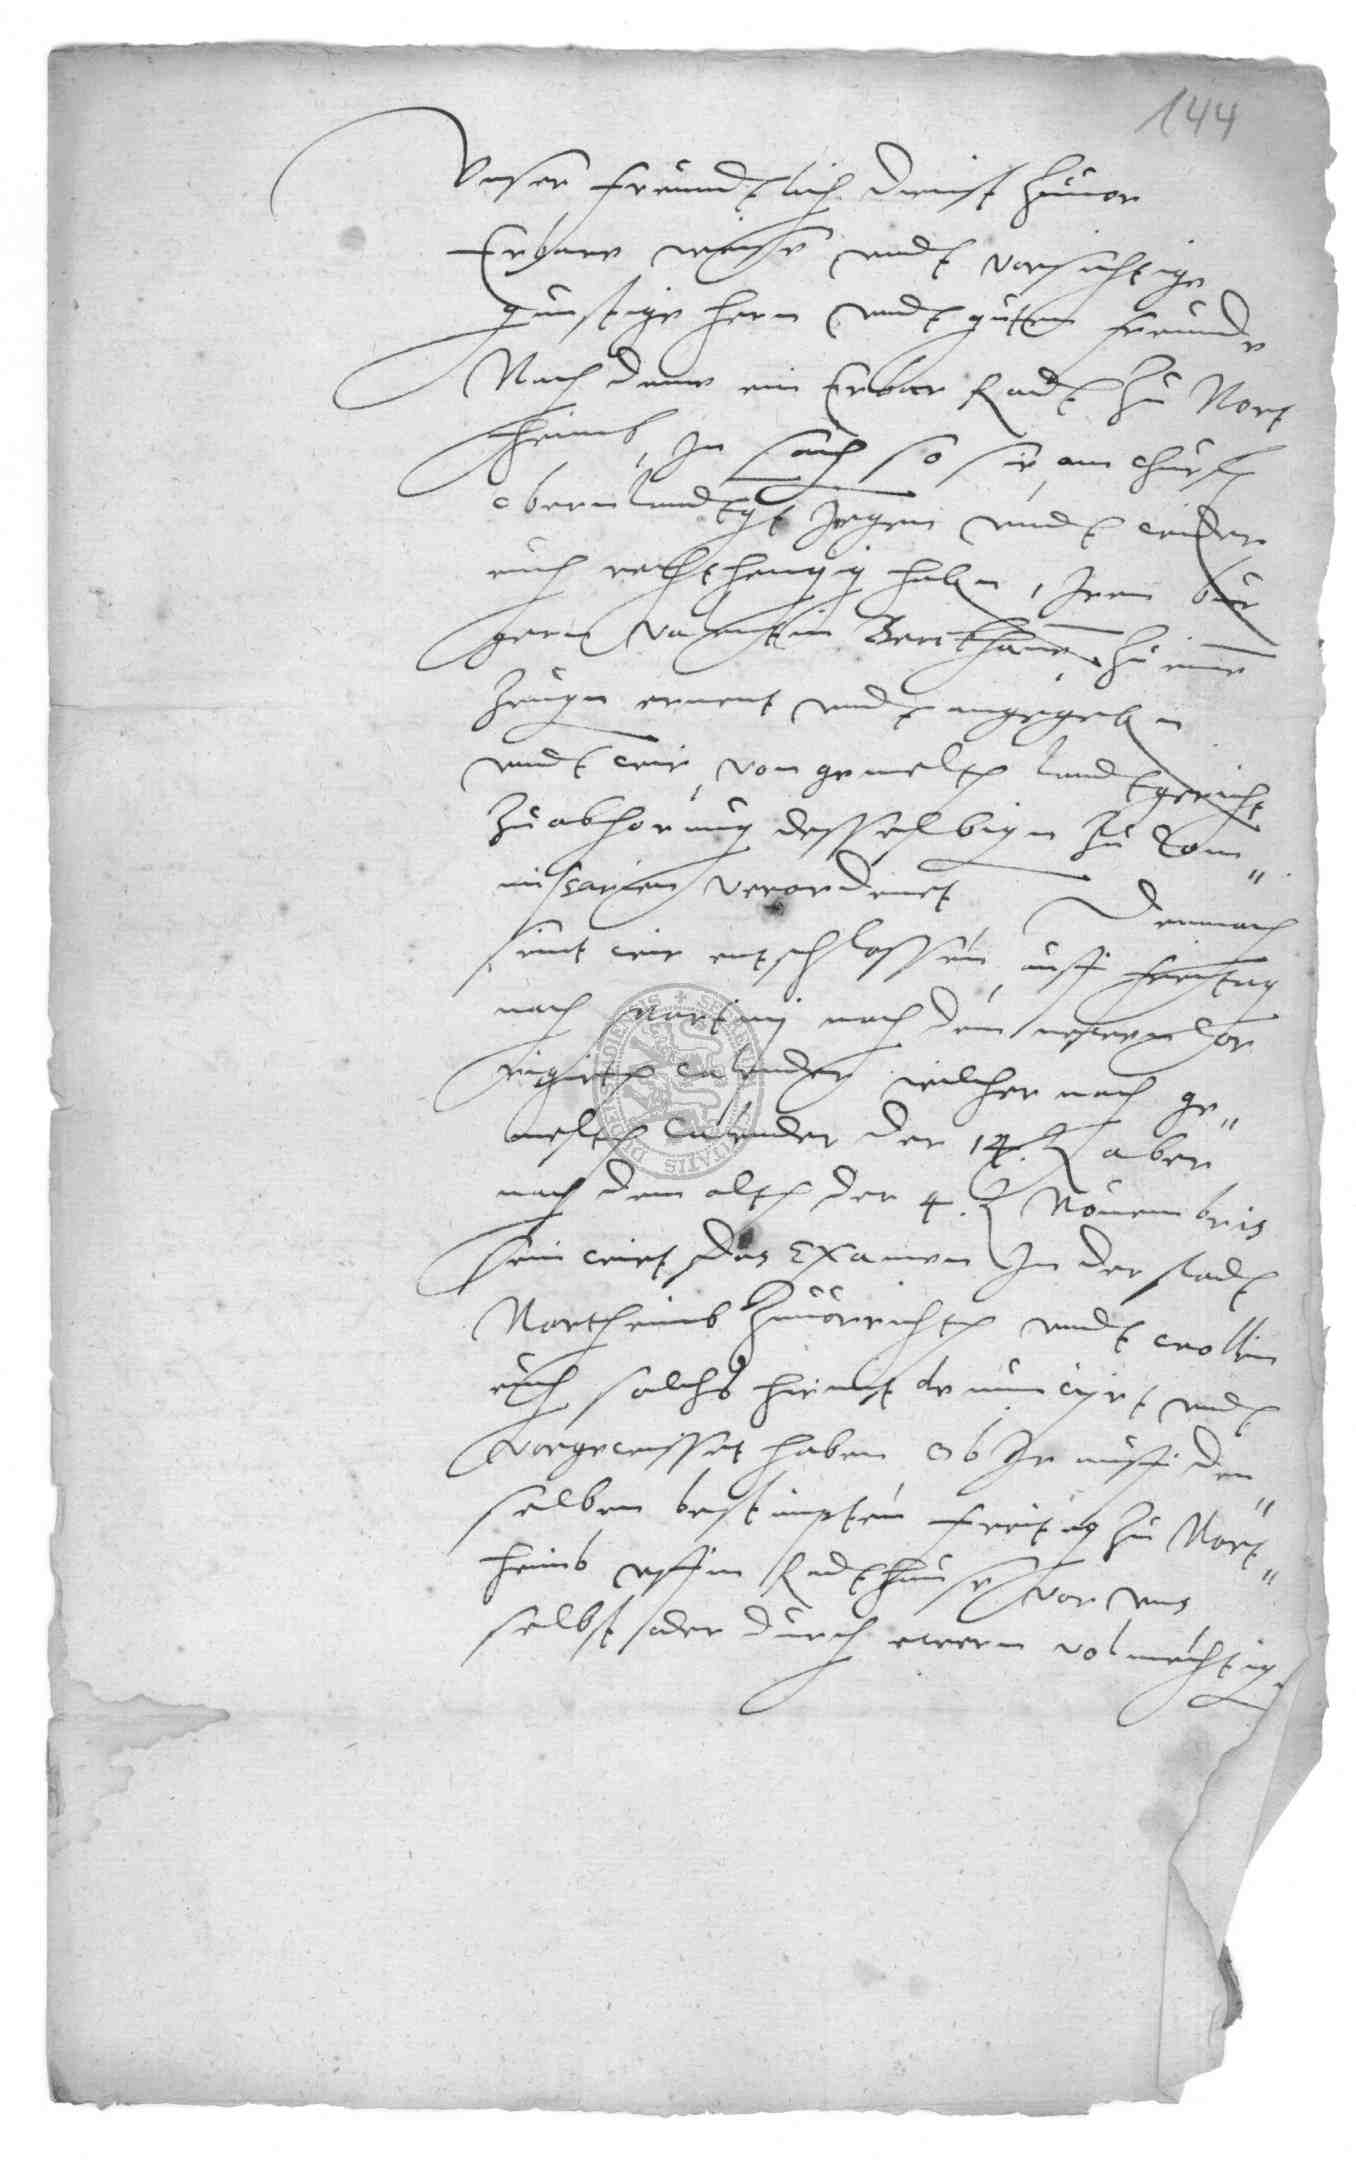 144
Vnser freundtlich dienst zuuor
Erbare weise vndt vorsichtige
gunstige hern vndt guten freunde
Nach deme ein Erbar Radt zu Nort
heimb, In sach so sie am
obern landtgt Jegen vndt wider
euch rechthengig haben, Iren bur
gern Valentin zu eine
Zeugen ernent vndt angegeben
vndt wir, von gemelten landtgericht
Zu abhorung desselbigen zu Com"
missarien verordenet Demnach
seint wir entschlossen, auff freitag
nach Martinj nach dem newen Cor
rigirten Calender welcher nach ge"
melten Calender der 14. aber
nach dem alten der 4. Nouembris
sein wirt das Examen In der stadt
Northeimb Zuuorrichten vndt wollen
euch solchs hiemit denuncijrt vndt
vorgewisset haben Ob Ir auff den"
selben bestimpten freitag zu Nort"
heimb vffm Radthause vor vns
selbst oder durch ewern volmechtig